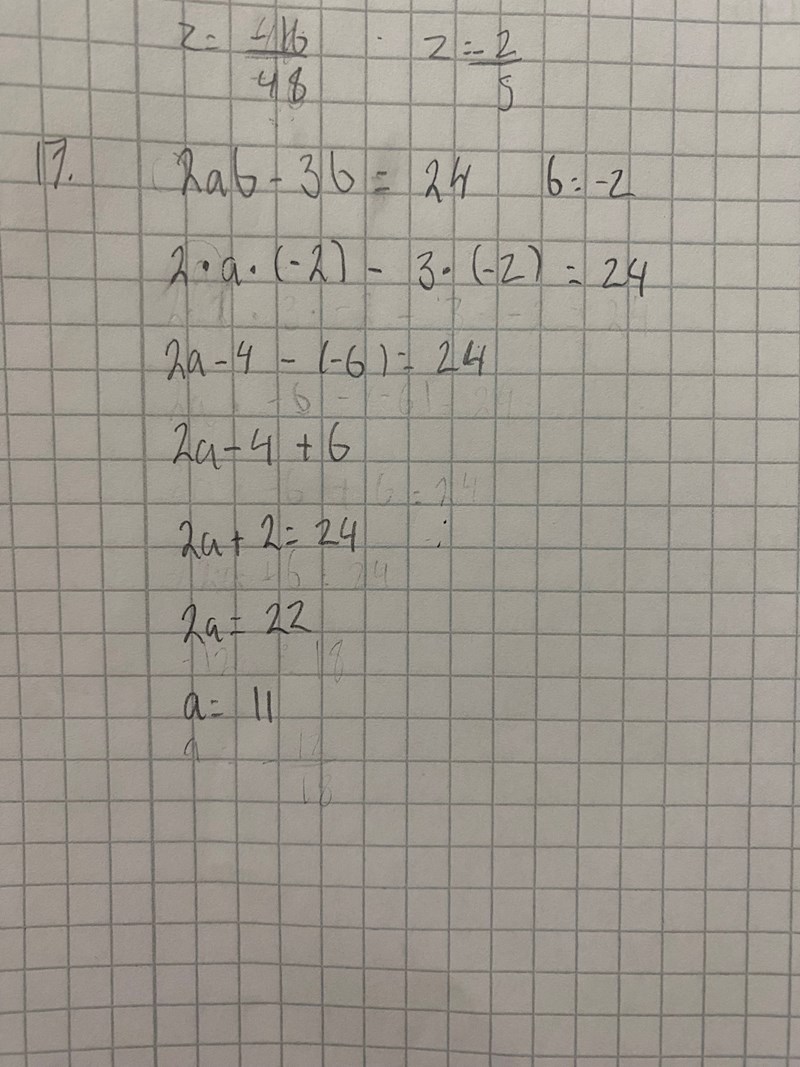 z = -16/48 z = -2/5
17. 2ab - 3b = 24 b = -2
2 · a · (-2) - 3 · (-2) = 24
2a - 4 - (-6) = 24
2a - 4 + 6
2a + 2 = 24
2a = 22
a = 11